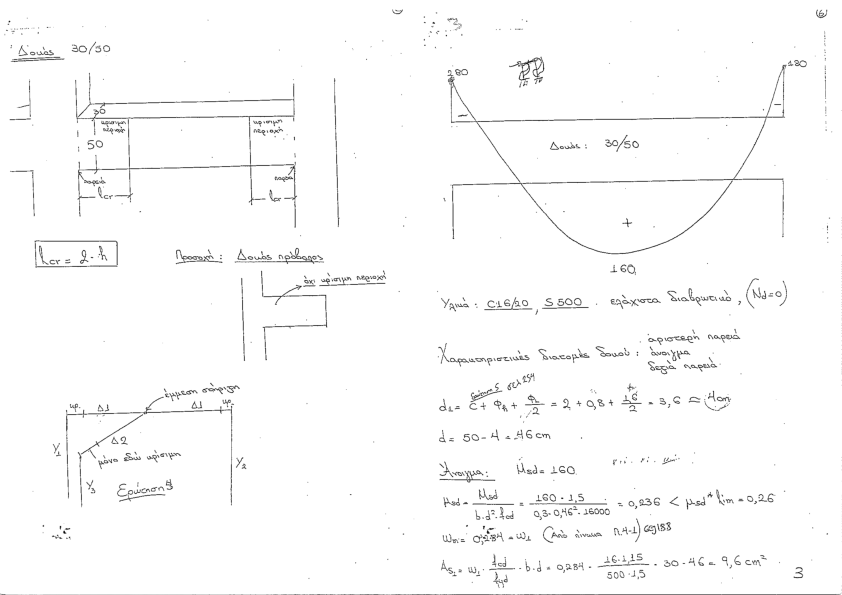 Δοκός 30/50
30
κρίσιμη περιοχή
κρίσιμη περιοχή
50
παρειά
παρειά
lcr
lcr
lcr = 2·h
Προσοχή : Δοκός πρόβολος
όχι κρίσιμη περιοχή
έμμεση στήριξη
κρ. Δ1 Δ1 κρ.
Δ2
Υ1
μόνο εδώ κρίσιμη
Υ2
Υ3
Ερώτηση 5
(6)
280
180
Δοκός : 30/50
+
160
Υλικά : C16/20, S500 . ελάχιστα διαβρωτικό, (Nd=0)
Χαρακτηριστικές διατομές δοκού : αριστερή παρειά
άνοιγμα
δεξιά παρειά
σελ 254
d1 = c + Φh + ΦL/2 = 2 + 0,8 + 1,6/2 = 3,6 ≈ 4cm
d = 50 - 4 = 46cm
Άνοιγμα: Msd = 160
μsd = Msd/b·d²·fcd = 160·1,5/0,3·0,46²·16000 = 0,236 < μsd* lim = 0,26
ω = 0,284 = ω1 (Από πίνακα Π.4-1) σελ 188
As1 = ω1 · fcd/fyd · b·d = 0,284 · 16·1,15/500·1,5 · 30·46 = 9,6 cm²
3